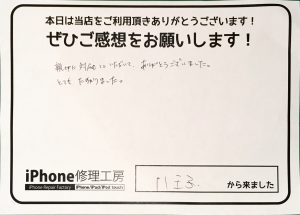 本日は当店をご利用頂きありがとうございます！
ぜひご感想をお願いします！
親切に対応していただいて、ありがとうございました。
とても たすかりました。
iPhone修理工房
iPhone Repair Factory iPhone/iPad/iPod touch
八王子
から来ました